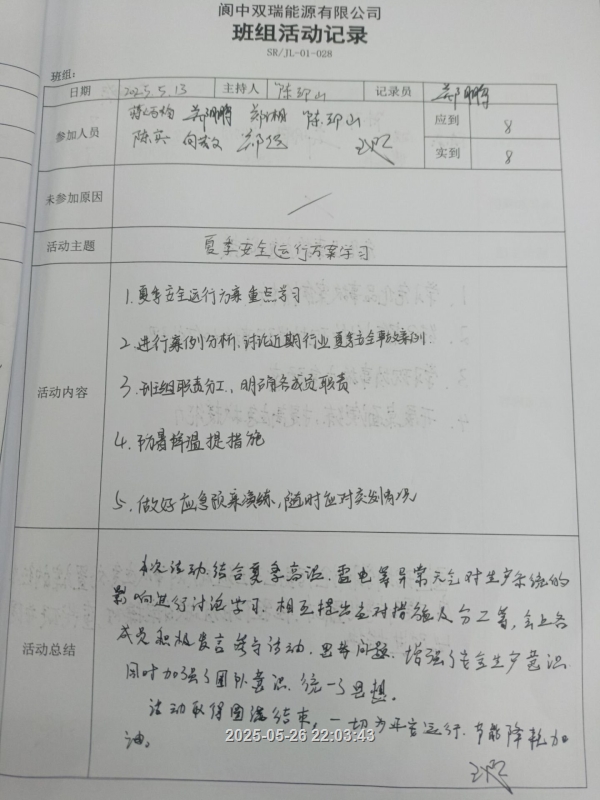 阆中双瑞能源有限公司
班组活动记录
SR/JL-01-028
班组：
日期 2025.5.13 主持人 陈 山 记录员 郑鹏
参加人员 郑鹏 郑湘 陈 山 应到 8
陈 向 郑 实到 8
未参加原因
活动主题 夏季安全运行方案学习
活动内容
1.夏季安全运行方案重点学习
2.进行案例分析，讨论近期行业夏季安全事故案例.
3.班组职责分工、明确各成员职责
4.防暑降温提措施
5.做好应急预案演练，随时应对突发情况
活动总结
本次活动.结合夏季高温.雷电等异常天气对生产系统的
影响进行讨论学习.相互提出应对措施及分工等，会上各
成员积极发言参与活动.思考问题.增强了安全生产意识
同时加强了团队意识.统一了思想。
活动取得圆满结束，一切为平安运行.节能降耗加
油。
2025-05-26 22:03:43